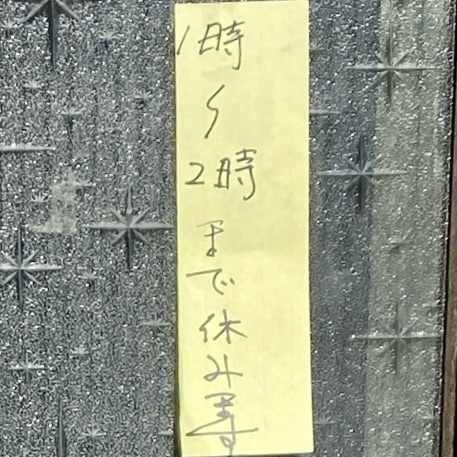 1時〜2時まで休みます